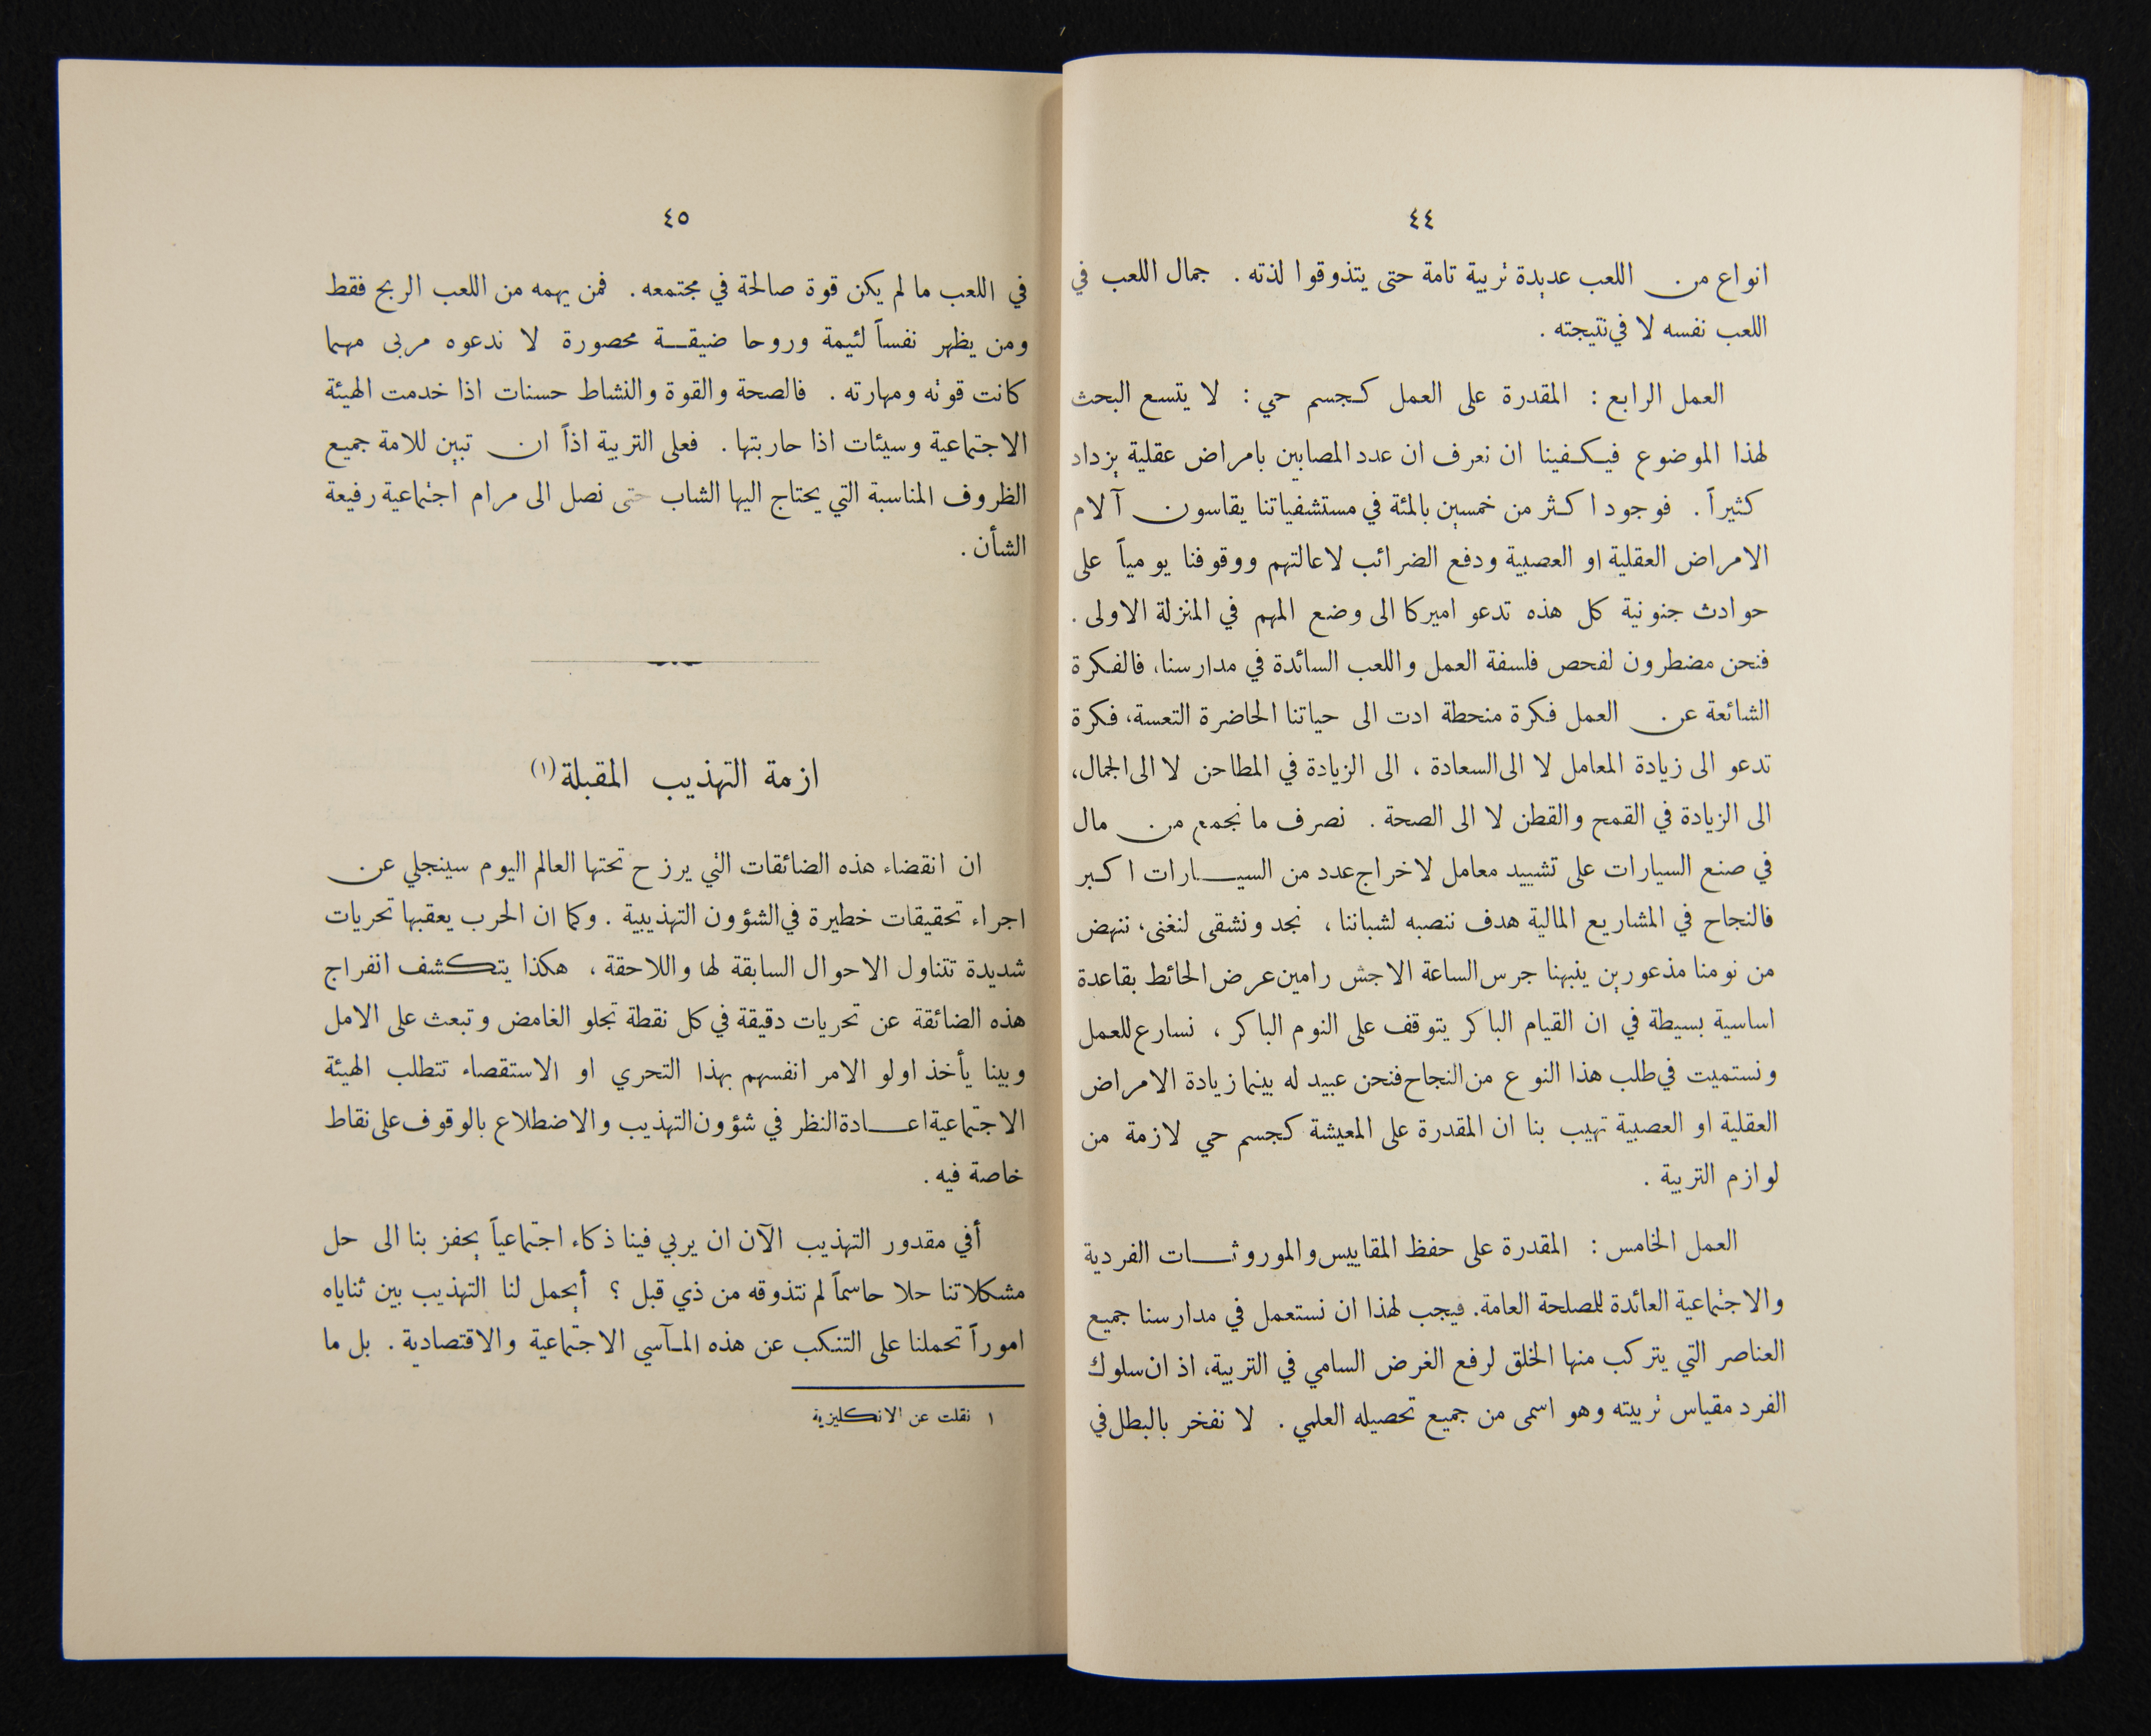 ٤٤
انواع من اللعب عديدة تربية تامة حتى يتذوقوا لذته . جمال اللعب في
اللعب نفسه لا في نتيجته .
العمل الرابع : المقدرة على العمل كجسم حي : لا يتسع البحث
لهذا الموضوع فيكفينا ان نعرف ان عدد المصابين بامراض عقلية يزداد
كثيراً . فوجود اكثر من خمسين بالمئة في مستشفياتنا يقاسون آلام
الامراض العقلية او العصبية ودفع الضرائب لاعالتهم ووقوفنا يومياً على
حوادث جنونية كل هذه تدعو اميركا الى وضع المهم في المنزلة الاولى .
فنحن مضطرون لفحص فلسفة العمل واللعب السائدة في مدارسنا، فالفكرة
الشائعة عن العمل فكرة منحطة ادت الى حياتنا الحاضرة التعسة، فكرة
تدعو الى زيادة المعامل لا الى السعادة ، الى الزيادة في المطاحن لا الى الجمال،
الى الزيادة في القمح والقطن لا الى الصحة . نصرف ما نجمع من مال
في صنع السيارات على تشييد معامل لاخراج عدد من السيارات اكبر
فالنجاح في المشاريع المالية هدف ننصبه لشباننا ، نجد ونشقى لنغنى، ننهض
من نومنا مذعورين ينبهنا جرس الساعة الاجش رامين عرض الحائط بقاعدة
اساسية بسيطة في ان القيام الباكر يتوقف على النوم الباكر ، نسارع للعمل
ونستميت في طلب هذا النوع من النجاح فنحن عبيد له بينما زيادة الامراض
العقلية او العصبية تهيب بنا ان المقدرة على المعيشة كجسم حي لازمة من
لوازم التربية .
العمل الخامس : المقدرة على حفظ المقاييس والموروثات الفردية
والاجتماعية العائدة للصلحة العامة. فيجب لهذا ان نستعمل في مدارسنا جميع
العناصر التي يتركب منها الخلق لرفع الغرض السامي في التربية، اذ ان سلوك
الفرد مقياس تربيته وهو اسمى من جميع تحصيله العلمي . لا نفخر بالبطل في
٤٥
في اللعب ما لم يكن قوة صالحة في مجتمعه . فمن يهمه من اللعب الربح فقط
ومن يظهر نفساً لئيمة وروحا ضيقة محصورة لا ندعوه مربى مهما
كانت قوته ومهارته . فالصحة والقوة والنشاط حسنات اذا خدمت الهيئة
الاجتماعية وسيئات اذا حاربتها . فعلى التربية اذاً ان تبين للامة جميع
الظروف المناسبة التي يحتاج اليها الشاب حتى نصل الى مرام اجتماعية رفيعة
الشأن .
ازمة التهذيب المقبلة (١)
ان انقضاء هذه الضائقات التي يرزح تحتها العالم اليوم سينجلي عن
اجراء تحقيقات خطيرة في الشؤون التهذيبية . وكما ان الحرب يعقبها تحريات
شديدة تتناول الاحوال السابقة لها واللاحقة ، هكذا يتكشف انفراج
هذه الضائقة عن تحريات دقيقة في كل نقطة تجلو الغامض وتبعث على الامل
وبينا يأخذ اولو الامر انفسهم بهذا التحري او الاستقصاء تتطلب الهيئة
الاجتماعية اعادة النظر في شؤون التهذيب والاضطلاع بالوقوف على نقاط
خاصة فيه .
أفي مقدور التهذيب الآن ان يربي فينا ذكاء اجتماعياً يحفز بنا الى حل
مشكلاتنا حلا حاسماً لم نتذوقه من ذي قبل ؟ أيحمل لنا التهذيب بين ثناياه
اموراً تحملنا على التنكب عن هذه المآسي الاجتماعية والاقتصادية . بل ما
١ نقلت عن الانكليزية